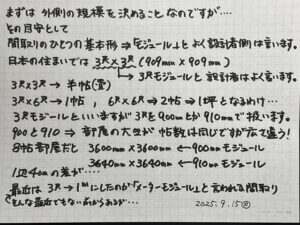 まずは 外側の規模を決めることなのですが‥‥
その目安として
間取りのひとつの基本形⇒「モジュール」とよく設計者側は言います。
日本の住まいでは 3尺×3尺 (909mm×909mm)
→3尺モジュールと設計者はよく言います。
3尺×3尺→半帖(畳)
3尺×6尺→1帖、6尺×6尺⇒2帖⇒1坪となるわけ…
3尺モジールといいますが3尺を900mmか910mmで扱います。
900と910⇒部屋の大きが帖数は同じですが広て違う!
8帖部屋だと 3600mm×3600mm ←900mmモジュール
3640mm×3640mm ←910mmモジュール
1辺4cmの差が‥‥
最近は 3尺→1㍍にしたのが「メーターモジュール」と言われる間取り
(そんな最近でもない前からあるが‥‥
2025.9.15